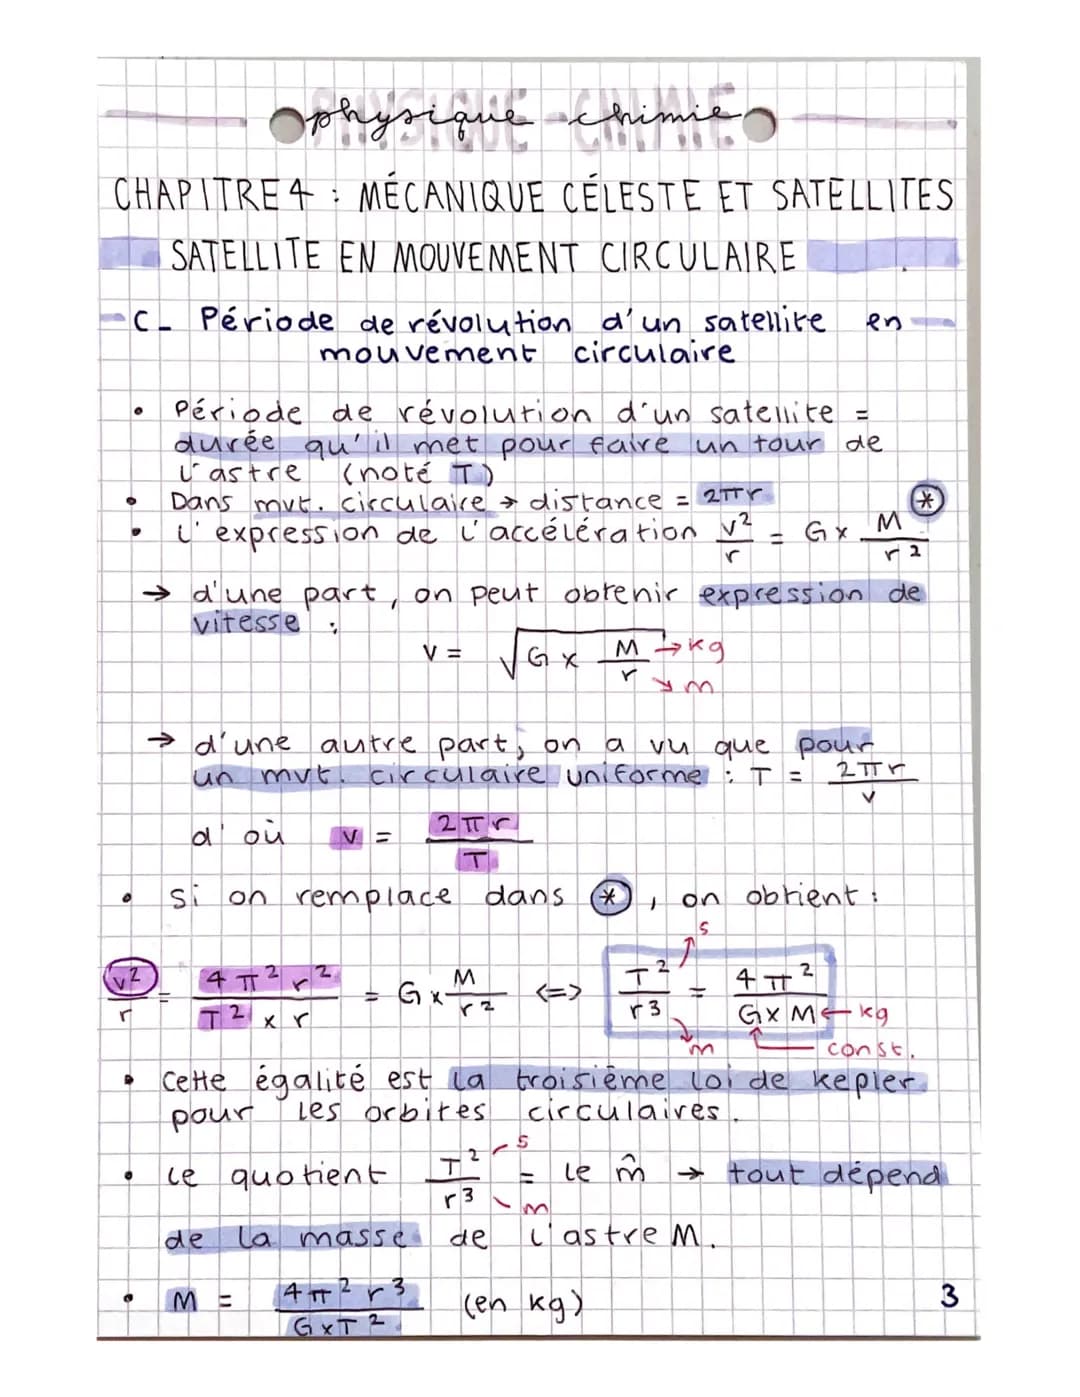 physique-chimie
CHAPITRE 4 : MÉCANIQUE CÉLESTE ET SATELLITES
SATELLITE EN MOUVEMENT CIRCULAIRE
-C- Période de révolution d'un satellite en
mouvement circulaire
• Période de révolution d'un satellite =
durée qu'il met pour faire un tour de
l'astre (noté T)
• Dans mvt. circulaire → distance = 2πr
• L'expression de l'accélération v²/r = G x M/r² (*)
→ d'une part, on peut obtenir expression de
vitesse :
v = √(G x M/r) → kg → m
→ d'une autre part, on a vu que pour
un mvt. circulaire uniforme : T = 2πr/v
d'où v = 2πr/T
• Si on remplace dans (*), on obtient :
v²/r = 4π²r²/T² x r = G x M/r² <=> T²/r³ = 4π²/G x M s m kg const.
• Cette égalité est la troisième loi de kepler
pour les orbites circulaires.
• Le quotient T²/r³ s m = le m̂ → tout dépend
de la masse de l'astre M.
• M = 4π²r³/G x T² (en kg)
3